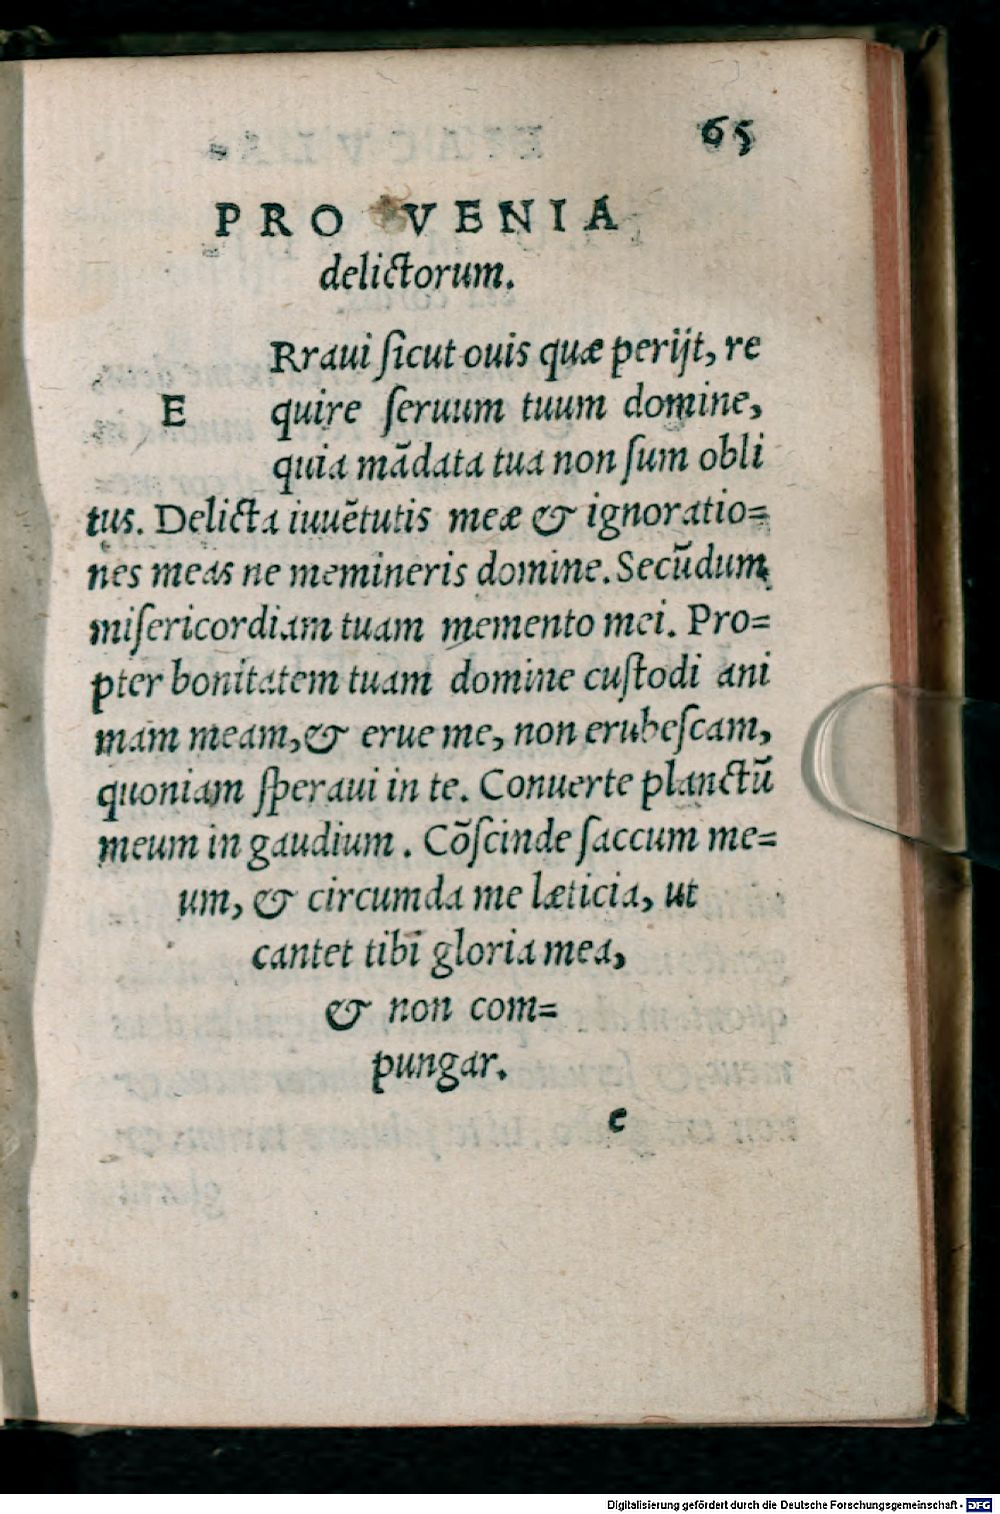 65
PRO VENIA
delictorum.
Rraui ſicut ouis quæ perijt, re
E quire ſeruum tuum domine,
quia mādata tua non ſum obli
tus. Delicta iuuẽtutis meæ & ignoratio=
nes meas ne memineris domine. Secũdum
miſericordiam tuam memento mei. Pro=
pter bonitatem tuam domine cuſtodi ani
mam meam, & erue me, non erubeſcam,
quoniam ſperaui in te. Conuerte planctũ
meum in gaudium. Cõſcinde ſaccum me=
um, & circumda me læticia, ut
cantet tibi gloria mea,
& non com=
pungar.
c
Digitalisierung gefördert durch die Deutsche Forschungsgemeinschaft - DFG